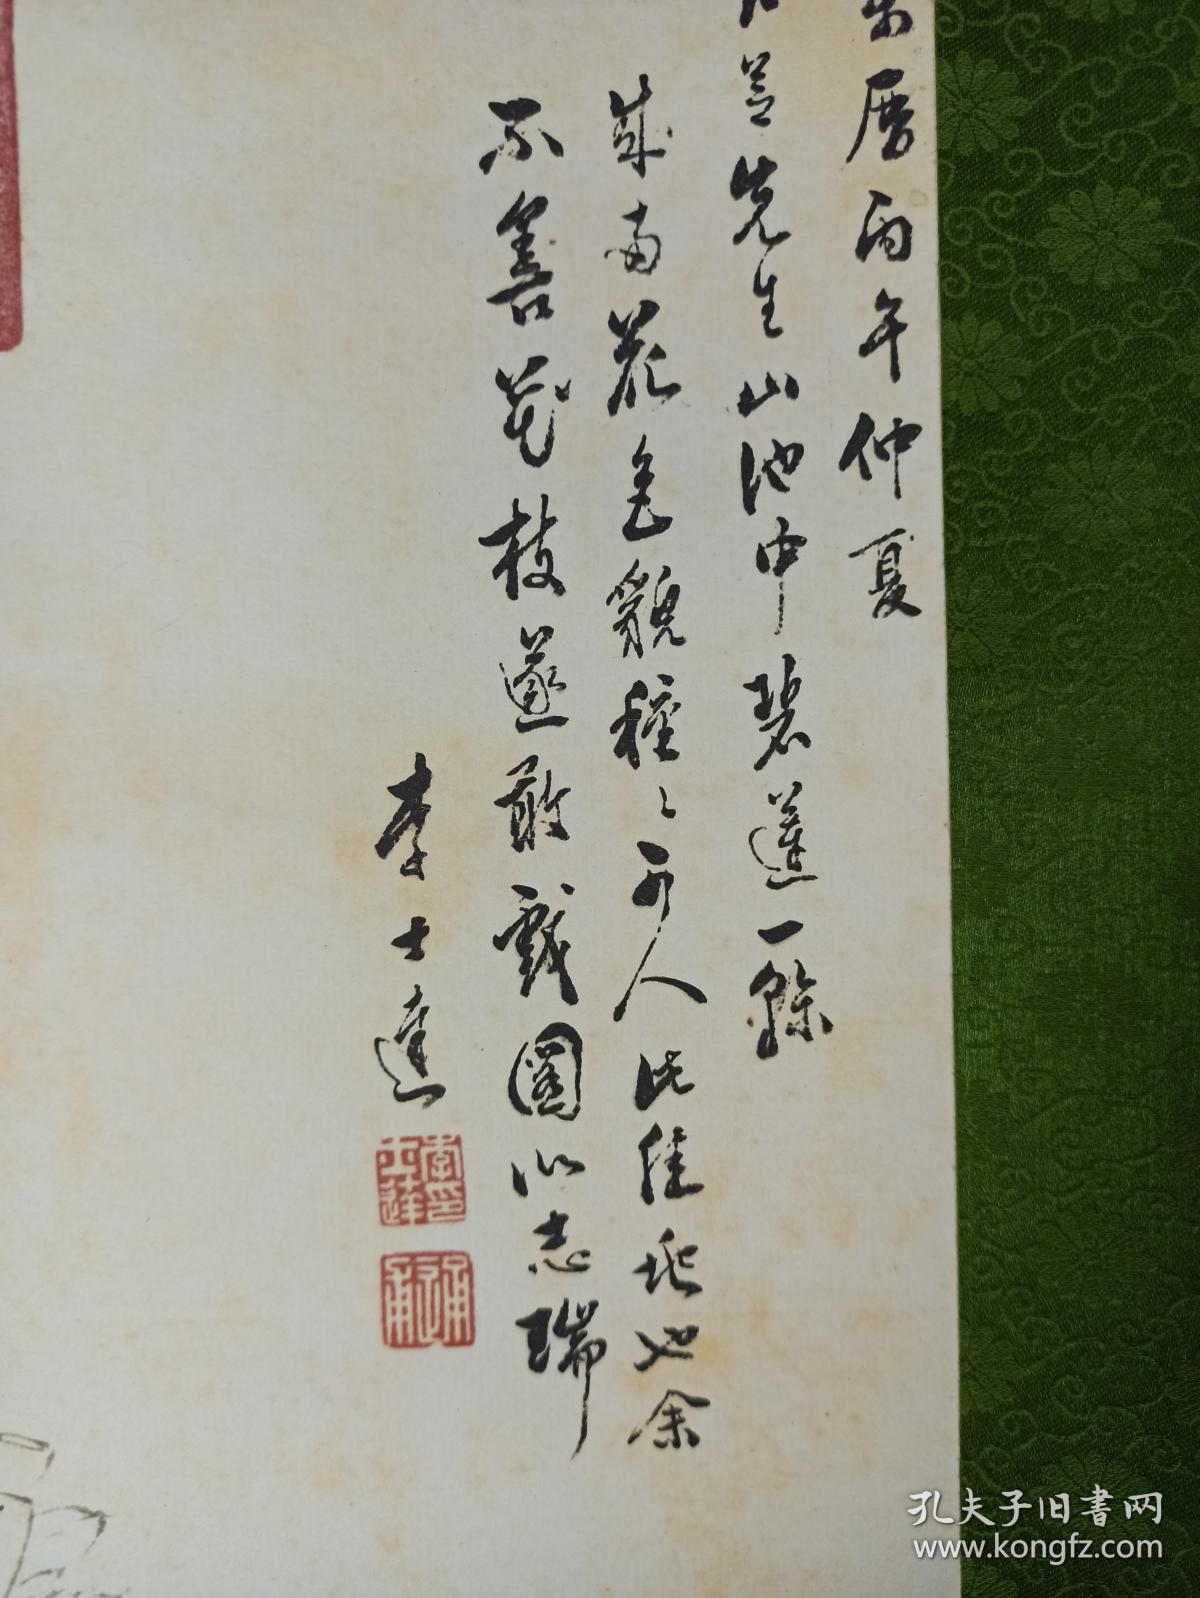 曆丙午仲夏
先生山池中碧蓮一餘
歲布花色貌種〻可人此佳兆也余
不善花枝遂敢戲圖以志瑞
李士達
孔夫子旧书网
www.kongfz.com